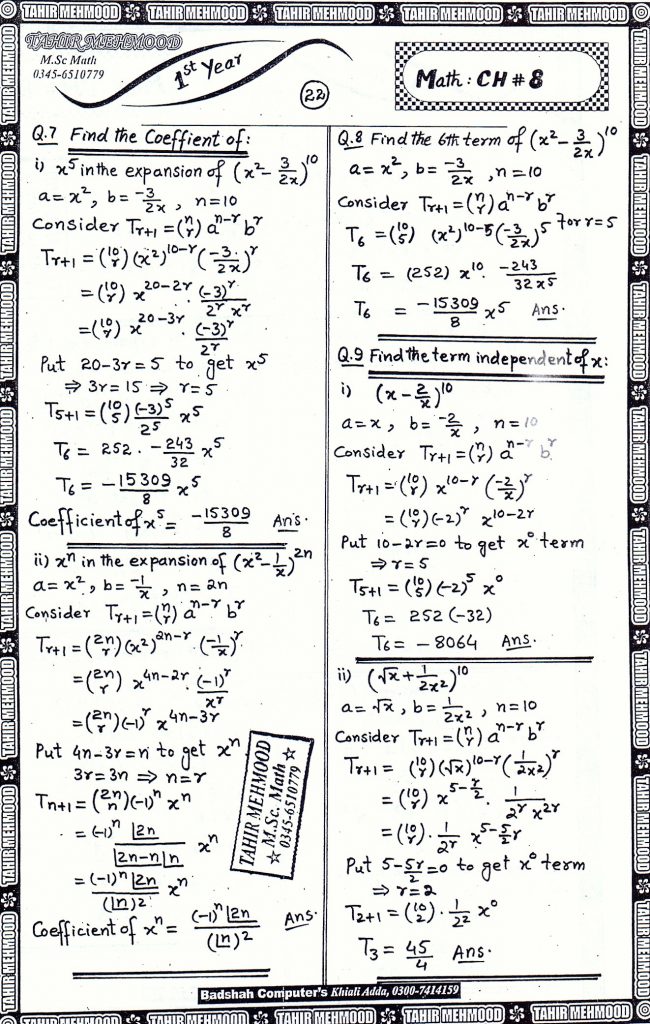 TAHIR MEHMOOD TAHIR MEHMOOD TAHIR MEHMOOD TAHIR MEHMOOD TAHIR MEHMOOD
TAHIR MEHMOOD
M.Sc Math
0345-6510779
1st Year
22
Math: CH # 8
Q.7 Find the Coeffient of:
i) x⁵ in the expansion of (x² - 3/2x)¹⁰
a = x², b = -3/2x, n = 10
Consider Tr+1 = (n r) aⁿ⁻ʳ bʳ
Tr+1 = (10 r) (x²)¹⁰⁻ʳ (-3/2x)ʳ
= (10 r) x²⁰⁻²ʳ . (-3)ʳ/2ʳ xʳ
= (10 r) x²⁰⁻³ʳ . (-3)ʳ/2ʳ
Put 20-3r = 5 to get x⁵
⇒ 3r = 15 ⇒ r = 5
T5+1 = (10 5) (-3)⁵/2⁵ x⁵
T6 = 252 . -243/32 x⁵
T6 = -15309/8 x⁵
Coefficient of x⁵ = -15309/8 Ans.
ii) xⁿ in the expansion of (x² - 1/x)²ⁿ
a = x², b = -1/x, n = 2n
Consider Tr+1 = (n r) aⁿ⁻ʳ bʳ
Tr+1 = (2n r) (x²)²ⁿ⁻ʳ . (-1/x)ʳ
= (2n r) x⁴ⁿ⁻²ʳ . (-1)ʳ/xʳ
= (2n r) (-1)ʳ x⁴ⁿ⁻³ʳ
Put 4n-3r = n to get xⁿ
3r = 3n ⇒ n = r
Tn+1 = (2n n) (-1)ⁿ xⁿ
= (-1)ⁿ |2n / |2n-n |n xⁿ
= (-1)ⁿ |2n / (|n)² xⁿ
Coefficient of xⁿ = (-1)ⁿ |2n / (|n)² Ans.
TAHIR MEHMOOD
☆ M.Sc. Math ☆
0345-6510779
Q.8 Find the 6th term of (x² - 3/2x)¹⁰
a = x², b = -3/2x, n = 10
Consider Tr+1 = (n r) aⁿ⁻ʳ bʳ
T6 = (10 5) (x²)¹⁰⁻⁵ (-3/2x)⁵ For r = 5
T6 = (252) x¹⁰ . -243/32x⁵
T6 = -15309/8 x⁵ Ans.
Q.9 Find the term independent of x:
i) (x - 2/x)¹⁰
a = x, b = -2/x, n = 10
Consider Tr+1 = (n r) aⁿ⁻ʳ bʳ
Tr+1 = (10 r) x¹⁰⁻ʳ (-2/x)ʳ
= (10 r) (-2)ʳ x¹⁰⁻²ʳ
Put 10-2r = 0 to get x⁰ term
⇒ r = 5
T5+1 = (10 5) (-2)⁵ x⁰
T6 = 252 (-32)
T6 = -8064 Ans.
ii) (√x + 1/2x²)¹⁰
a = √x, b = 1/2x², n = 10
Consider Tr+1 = (n r) aⁿ⁻ʳ bʳ
Tr+1 = (10 r) (√x)¹⁰⁻ʳ (1/2x²)ʳ
= (10 r) x^(5-r/2) . 1/2ʳ x²ʳ
= (10 r) . 1/2ʳ x^(5-5/2 r)
Put 5-5r/2 = 0 to get x⁰ term
⇒ r = 2
T2+1 = (10 2) . 1/2² x⁰
T3 = 45/4 Ans.
Badshah Computer's Khiali Adda, 0300-7414159
TAHIR MEHMOOD TAHIR MEHMOOD TAHIR MEHMOOD TAHIR MEHMOOD TAHIR MEHMOOD